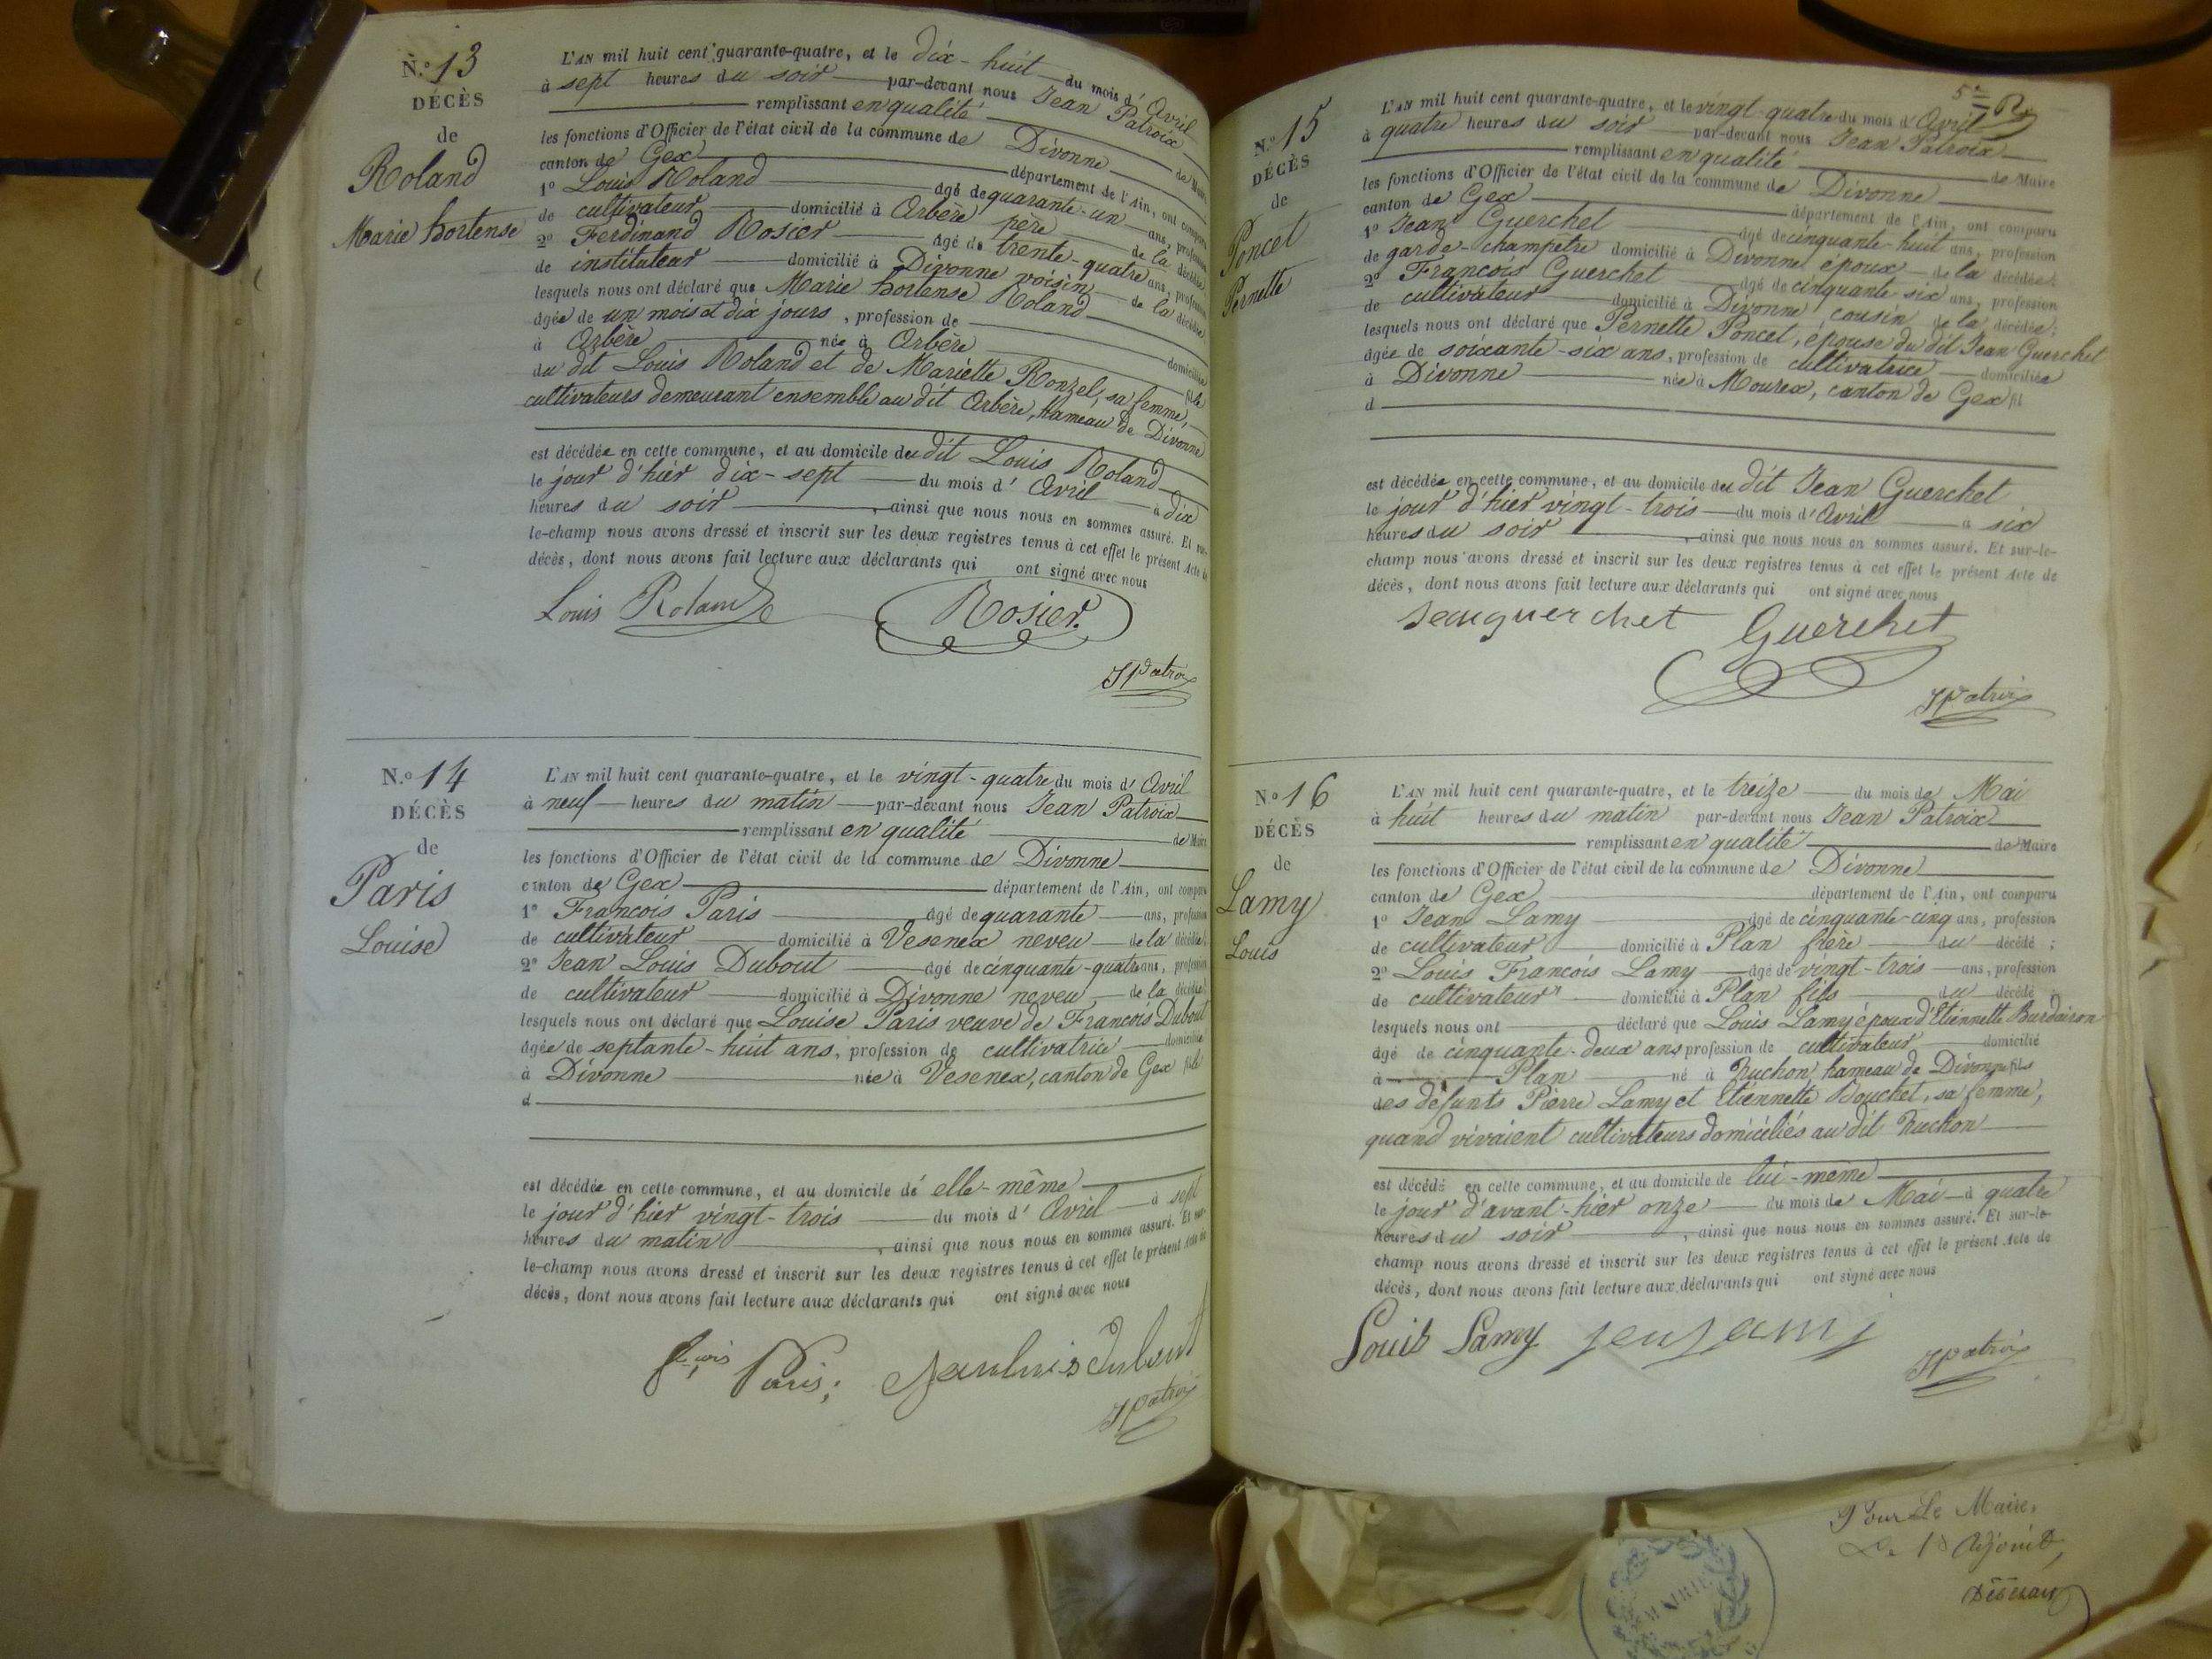 N.o 13
DÉCÈS
de
Roland
Marie hortense
L'AN mil huit cent quarante-quatre, et le dix-huit du mois d' Avril
à sept heures du soir par-devant nous Jean Patroix
remplissant en qualité de Maire
les fonctions d'Officier de l'état civil de la commune de Divonne
canton de Gex département de l'Ain, ont comparu
1o Louis Roland âgé de quarante-un ans, profession
de cultivateur domicilié à Arbère père de la décédée
2o Ferdinand Rosier âgé de trente-quatre ans, profession
de instituteur domicilié à Divonne voisin de la décédée
lesquels nous ont déclaré que Marie hortense Roland
âgée de un mois et dix jours, profession de domiciliée
à Arbère née à Arbère fille
du dit Louis Roland et de Mariette Ronzel, sa femme,
cultivateurs demeurant ensemble au dit Arbère, hameau de Divonne
est décédée en cette commune, et au domicile du dit Louis Roland
le jour d'hier dix-sept du mois d' Avril à dix
heures du soir, ainsi que nous nous en sommes assuré. Et sur-
le-champ nous avons dressé et inscrit sur les deux registres tenus à cet effet le présent Acte de
décès, dont nous avons fait lecture aux déclarants qui ont signé avec nous
Louis Roland Rosier.
JPatroix
N.o 14
DÉCÈS
de
Paris
Louise
L'AN mil huit cent quarante-quatre, et le vingt-quatre du mois d' Avril
à neuf heures du matin par-devant nous Jean Patroix
remplissant en qualité de Maire
les fonctions d'Officier de l'état civil de la commune de Divonne
canton de Gex département de l'Ain, ont comparu
1o François Paris âgé de quarante ans, profession
de cultivateur domicilié à Vesenex neveu de la décédée
2o Jean Louis Dubout âgé de cinquante-quatre ans, profession
de cultivateur domicilié à Divonne neveu de la décédée
lesquels nous ont déclaré que Louise Paris veuve de François Dubout
âgée de septante-huit ans, profession de cultivatrice domiciliée
à Divonne née à Vesenex, canton de Gex fille
d
est décédée en cette commune, et au domicile de elle-même
le jour d'hier vingt-trois du mois d' Avril à sept
heures du matin, ainsi que nous nous en sommes assuré. Et sur-
le-champ nous avons dressé et inscrit sur les deux registres tenus à cet effet le présent Acte de
décès, dont nous avons fait lecture aux déclarants qui ont signé avec nous
Paris; Jean louis Dubout
JPatroix
5e
N.o 15
DÉCÈS
de
Poncet
Pernette
L'AN mil huit cent quarante-quatre, et le vingt-quatre du mois d' Avril
à quatre heures du soir par-devant nous Jean Patroix
remplissant en qualité de Maire
les fonctions d'Officier de l'état civil de la commune de Divonne
canton de Gex département de l'Ain, ont comparu
1o Jean Guerchet âgé de cinquante-huit ans, profession
de garde-champêtre domicilié à Divonne époux de la décédée;
2o François Guerchet âgé de cinquante-six ans, profession
de cultivateur domicilié à Divonne cousin de la décédée;
lesquels nous ont déclaré que Pernette Poncet, épouse du dit Jean Guerchet
âgée de soixante-six ans, profession de cultivatrice domiciliée
à Divonne née à Mourex, canton de Gex fil
d
est décédée en cette commune, et au domicile du dit Jean Guerchet
le jour d'hier vingt-trois du mois d' Avril à six
heures du soir, ainsi que nous nous en sommes assuré. Et sur-le-
champ nous avons dressé et inscrit sur les deux registres tenus à cet effet le présent Acte de
décès, dont nous avons fait lecture aux déclarants qui ont signé avec nous
Jean guerchet Guerchet
JPatroix
N.o 16
DÉCÈS
de
Lamy
Louis
L'AN mil huit cent quarante-quatre, et le treize du mois de Mai
à huit heures du matin par-devant nous Jean Patroix
remplissant en qualité de Maire
les fonctions d'Officier de l'état civil de la commune de Divonne
canton de Gex département de l'Ain, ont comparu
1o Jean Lamy âgé de cinquante-cinq ans, profession
de cultivateur domicilié à Plan frère du décédé;
2o Louis François Lamy âgé de vingt-trois ans, profession
de cultivateur domicilié à Plan fils du décédé
lesquels nous ont déclaré que Louis Lamy époux d'Etiennette Burdairon
âgé de cinquante-deux ans profession de cultivateur domicilié
à Plan né à Ruchon hameau de Divonne fils
des défunts Pierre Lamy et Etiennette Bouchet, sa femme,
quand vivaient cultivateurs domiciliés au dit Ruchon
est décédé en cette commune, et au domicile de lui-même
le jour d'avant-hier onze du mois de Mai à quatre
heures du soir, ainsi que nous nous en sommes assuré. Et sur-le-
champ nous avons dressé et inscrit sur les deux registres tenus à cet effet le présent Acte de
décès, dont nous avons fait lecture aux déclarants qui ont signé avec nous
Louis Lamy Jean Lamy
JPatroix
Pour Le Maire,
Adjoint,
MAIRIE